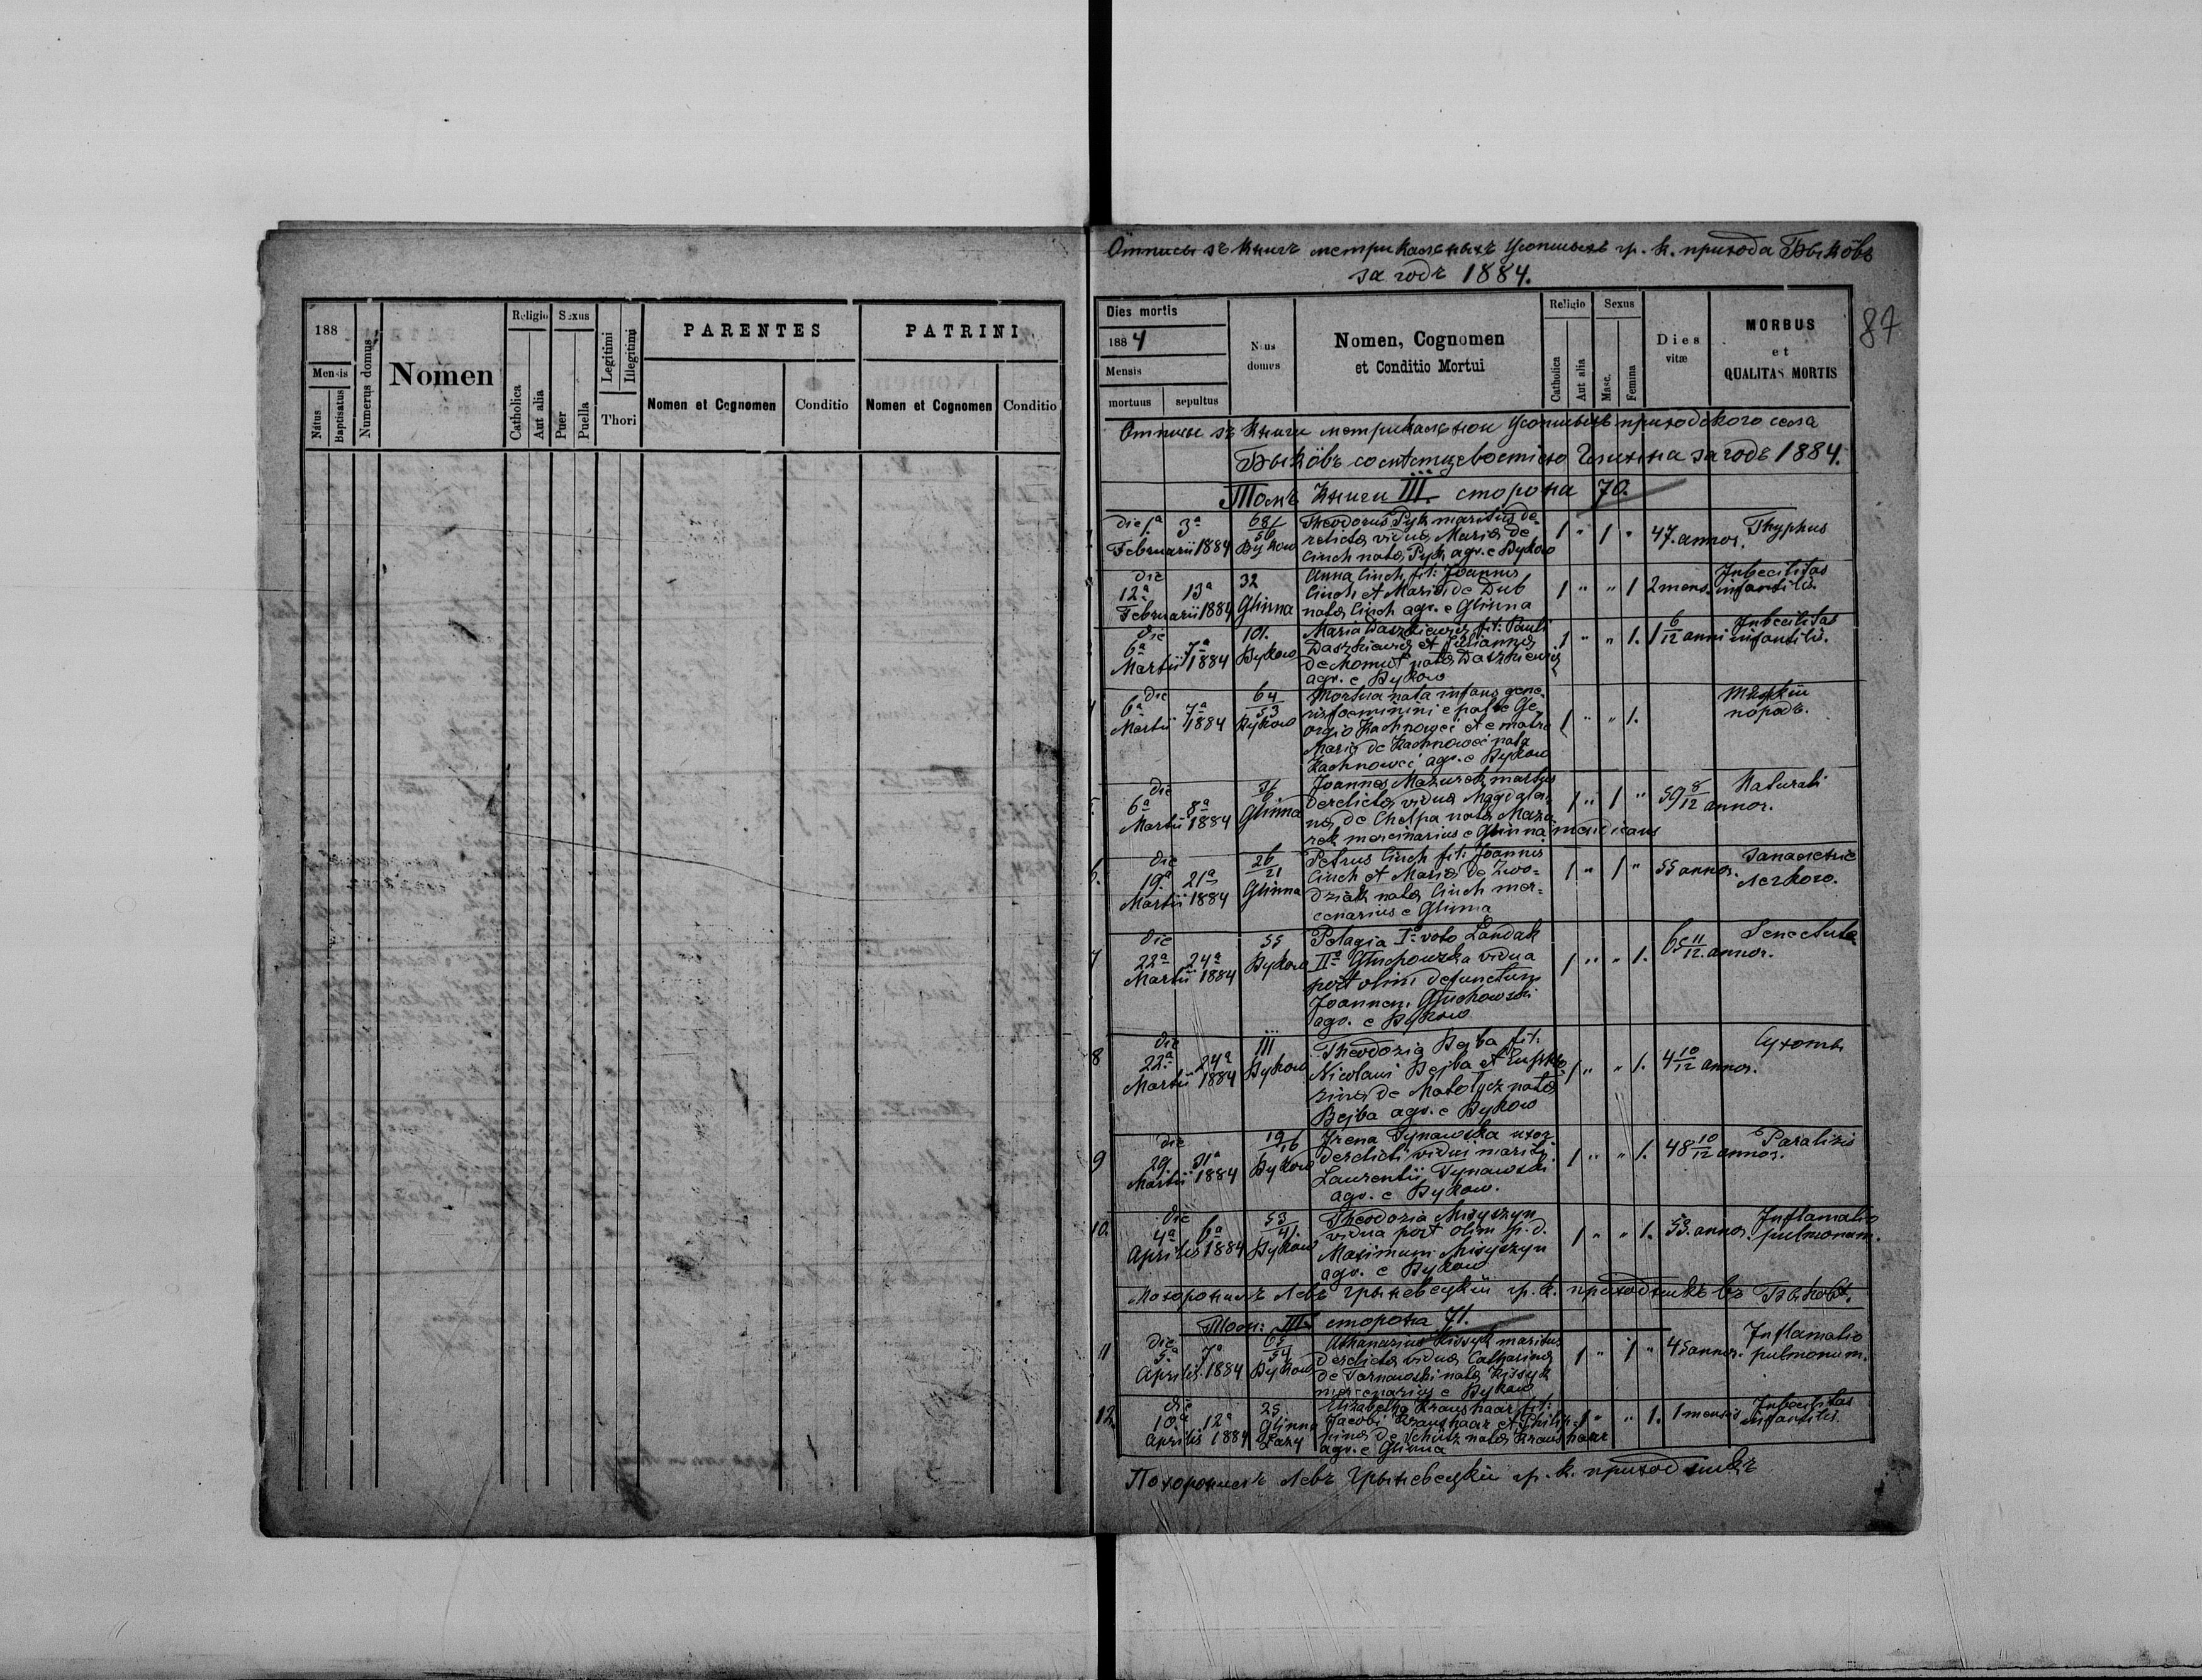 188
Mensis
Nátus
Baptisatus
Numerus domus
Nomen
Religio
Catholica
Aut alia
Sexus
Puer
Puella
Legitimi
Illegitimi
Thori
PARENTES
Nomen et Cognomen
Conditio
PATRINI
Nomen et Cognomen
Conditio
Отписы зъ Книгъ метрикальныхъ Усопшихъ гр. к. прихода Быкôвъ
за годъ 1884.
87
Dies mortis
1884
Mensis
mortuus
sepultus
Nrus
domus
Nomen, Cognomen
et Conditio Mortui
Religio
Catholica
Aut alia
Sexus
Masc.
Femina
Dies
vitæ
MORBUS
et
QUALITAS MORTIS
Отписы зъ Книги метрикальнои Усопшихъ приходского села
Быкôвъ со Глинна за годъ 1884.
Томъ Книги III. сторона 70.
die 1ª 3ª
Februarii 1884
68/56
Bykow
Theodorus Pyk maritus de-
relictae viduae Mariae de
Cinch natae Pyk agr. e Bykow
1 " 1 " 47. annor. Thyphus
die
12ª 13ª
Februarii 1884
32
Glinna
Anna Cinch fil: Joannis
Cinch et Mariae de Dub
natae Cinch agr. e Glinna
1 " " 1 2 mens. Inbecilitas
infantilis.
die
6ª 7ª
Martii 1884
101.
Bykow
Maria Daszkiewicz fil: Pauli
Daszkiewicz et Juliannae
de Momut natae Daszkiewicz
agr. e Bykow
1 " " 1. 1 6/12 anni Inbecilitas
infantilis.
4
die
6ª 7ª
Martii 1884
64/53
Bykow
Mortua nata infans gene-
ris foeminini e patre Ge-
orgio Kachnowci et e matre
Maria de Kachnowci nata
Kachnowci agr. e Bykow
1 " " 1. Тяжкій
породъ.
5
die
6ª 8ª
Martii 1884
Glinna
Joannes Mazurek maritus
derelictae viduae Magdale-
nae de Cholpa natae Mazu-
rek mercinarius e Glinna mendicans
1 " 1 " 59 8/12 annor. Naturali
6.
die
19ª 21ª
Martii 1884
26/21
Glinna
Petrus Cinch fil: Joannis
Cinch et Mariae de Zwo-
dziak natae Cinch mer-
cenarius e Glinna
1 " 1 " 55 annor. Запаленіе
легкого.
7
die
22ª 24ª
Martii 1884
55
Bykow
Pelagia Iº voto Landak
IIº Gluchowska vidua
post olim defunctum
Joannem Gluchowski
agr. e Bykow
1 " " 1. 65 11/12 annor. Senectute
8
die
22ª 24ª
Martii 1884
111
Bykow
Theodozia Bejba fil:
Nicolaui Bejba et Eufro-
zinae de Matołycz natae
Bejba agr. e Bykow
1 " " 1. 4 10/12 annor. Сухоты
9
die
29. 31ª
Martii 1884
19/16
Bykow
Irena Tynawska uxor
derelicti vidui mariti
Laurentii Tynawski
agr. e Bykow.
1 " " 1. 48 10/12 annor. Paralisis
10.
die
4ª 6ª
Aprilis 1884
53/41.
Bykow
Theodozia Misyszyn
vidua post olim p. d.
Maximum Misyszyn
agr. e Bykow
1 " " 1. 53. annor. Inflamatio
pulmonum.
Похоронилъ Левъ Грыневецкій гр. к. приходникъ въ Быковѣ.
Томъ: III. сторона 71.
11
die
5ª 7ª
Aprilis. 1884
65/54
Bykow
Athanazius Kissyk maritus
derelictae viduae Catharinae
de Tarnawski natae Kissyk
mercenarius e Bykow
1 " 1 " 45 annor. Inflamatio
pulmonum.
12
die
10ª 12ª
Aprilis 1884
25
Glinna
Łazy
Elizabetha Kraushaar fil:
Jacobi Kraushaar et Philip-
pinae de Schütz natae Kraushaar
agr. e Glinna
1 " " 1. 1 mensis Inbecilitas
infantilis.
Похоронилъ Левъ Грыневецкій гр. к. приходникъ